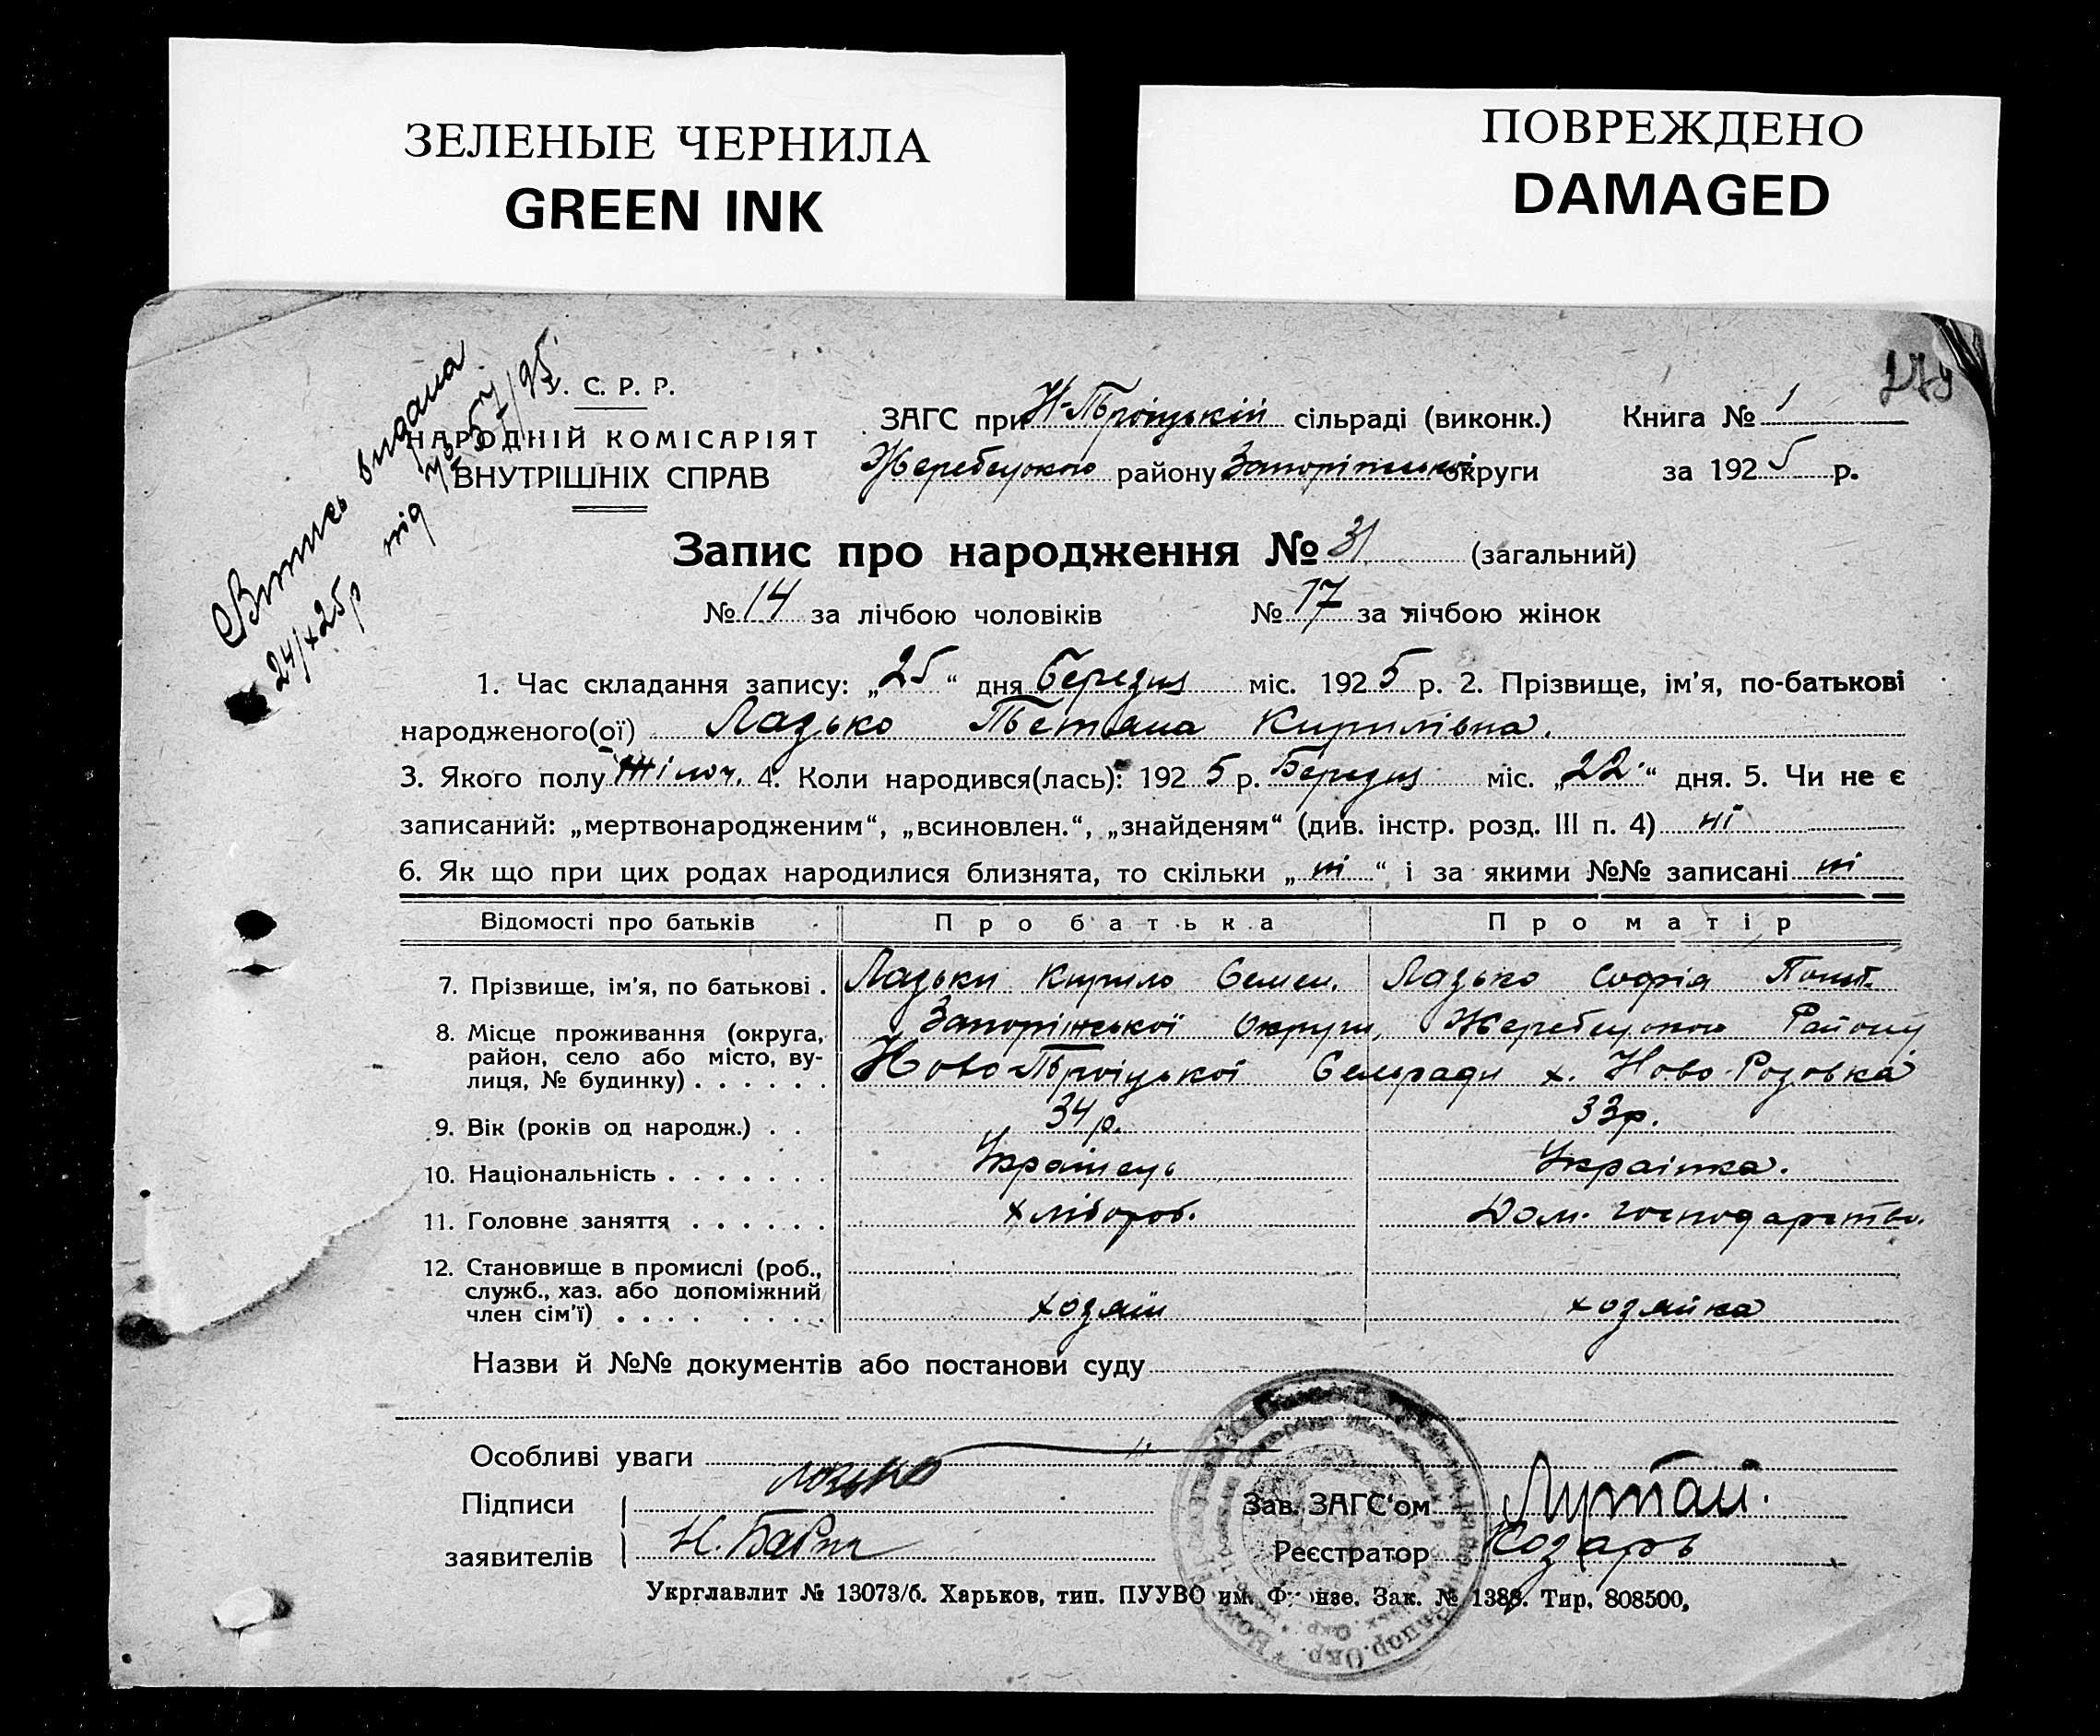 ЗЕЛЕНЫЕ ЧЕРНИЛА
GREEN INK
ПОВРЕЖДЕНО
DAMAGED
Випись видана
24/X 25р під №
У. С. Р. Р.
НАРОДНІЙ КОМІСАРІЯТ
ВНУТРІШНІХ СПРАВ
ЗАГС при Н-Троіцькій сільраді (виконк.) Книга № 1
Жеребецкого району Запоріжської округи за 1925 р.
Запис про народження № 31 (загальний)
№ 14 за лічбою чоловіків № 17 за лічбою жінок
1. Час складання запису: „25“ дня Березня міс. 1925 р. 2. Прізвище, ім'я, по-батькові
народженого(ої) Лазько Тетяна Кирилівна.
3. Якого полу Жіноч. 4. Коли народився(лась): 1925 р. Березня міс. „22“ дня. 5. Чи не є
записаний: „мертвонародженим“, „всиновлен.“, „знайденям“ (див. інстр. розд. III п. 4) ні
6. Як що при цих родах народилися близнята, то скільки „ні“ і за якими №№ записані ні
Відомості про батьків Про батька Про матір
7. Прізвище, ім'я, по батькові . Лазьки Кирило Семен. Лазько Софія
8. Місце проживання (округа, Запоріжської Округи, Жеребецкого Району
район, село або місто, ву- Ново-Троіцької Сельради х. Ново-Розовка
лиця, № будинку) . . . . . .
9. Вік (років од народж.) . . 34 р. 33 р.
10. Національність . . . . . . . Українець Українка.
11. Головне заняття . . . . . . хлібороб. Дом. господарство.
12. Становище в промислі (роб.,
служб., хаз. або допоміжний
член сім'ї) . . . . . . . . хозяїн хозяйка
Назви й №№ документів або постанови суду
Особливі уваги
Підписи Лазько Зав. ЗАГС'ом Лутай.
заявителів Н. Реєстратор Козарь
Укрглавлит № 13073/б. Харьков, тип. ПУУВО им. Фрунзе. Зак. № 1388. Тир. 808500.